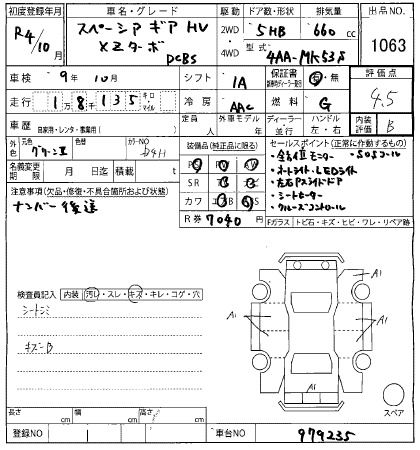 初度登録年月 車名・グレード 駆動 ドア数・形状 排気量 出品NO
R4/10月 スペーシア ギア HV 2WD 5HB 660cc
XZターボ DCBS 4WD 型式 4AA-MK53S 1063
車検 9年 10月 シフト IA 保証書 有・無 評価点
走行 1万8千135 キロ・マイル 冷房 AAC 燃料 G 4.5
車歴 自家用・レンタ・事業用( ) 定員 人 外車モデル 年 ディーラー・並行 ハンドル 左・右 内装評価 B
外色 元色 色替 カラーNO
名義変更期限 月 日迄 積載 t
装備品(純正品に限る)
セールスポイント(正常に動作するもの)
・全方位モニター ・SOSコール
・オートライト・LEDライト
・左右Pスライドドア
・シートヒーター
・クルーズコントロール
SR
カワ
R券 7040円
注意事項(欠品・修復・不具合箇所および状態)
ナンバー後送
Fガラス トビ石・キズ・ヒビ・ワレ・リペア跡
検査員記入 内装 汚れ・スレ・キズ・キレ・コゲ・穴
シートシミ
キズ-B
A1
A1
A1
A1
スペア
長さ cm 幅 cm 高さ cm
登録NO 車台NO 979235